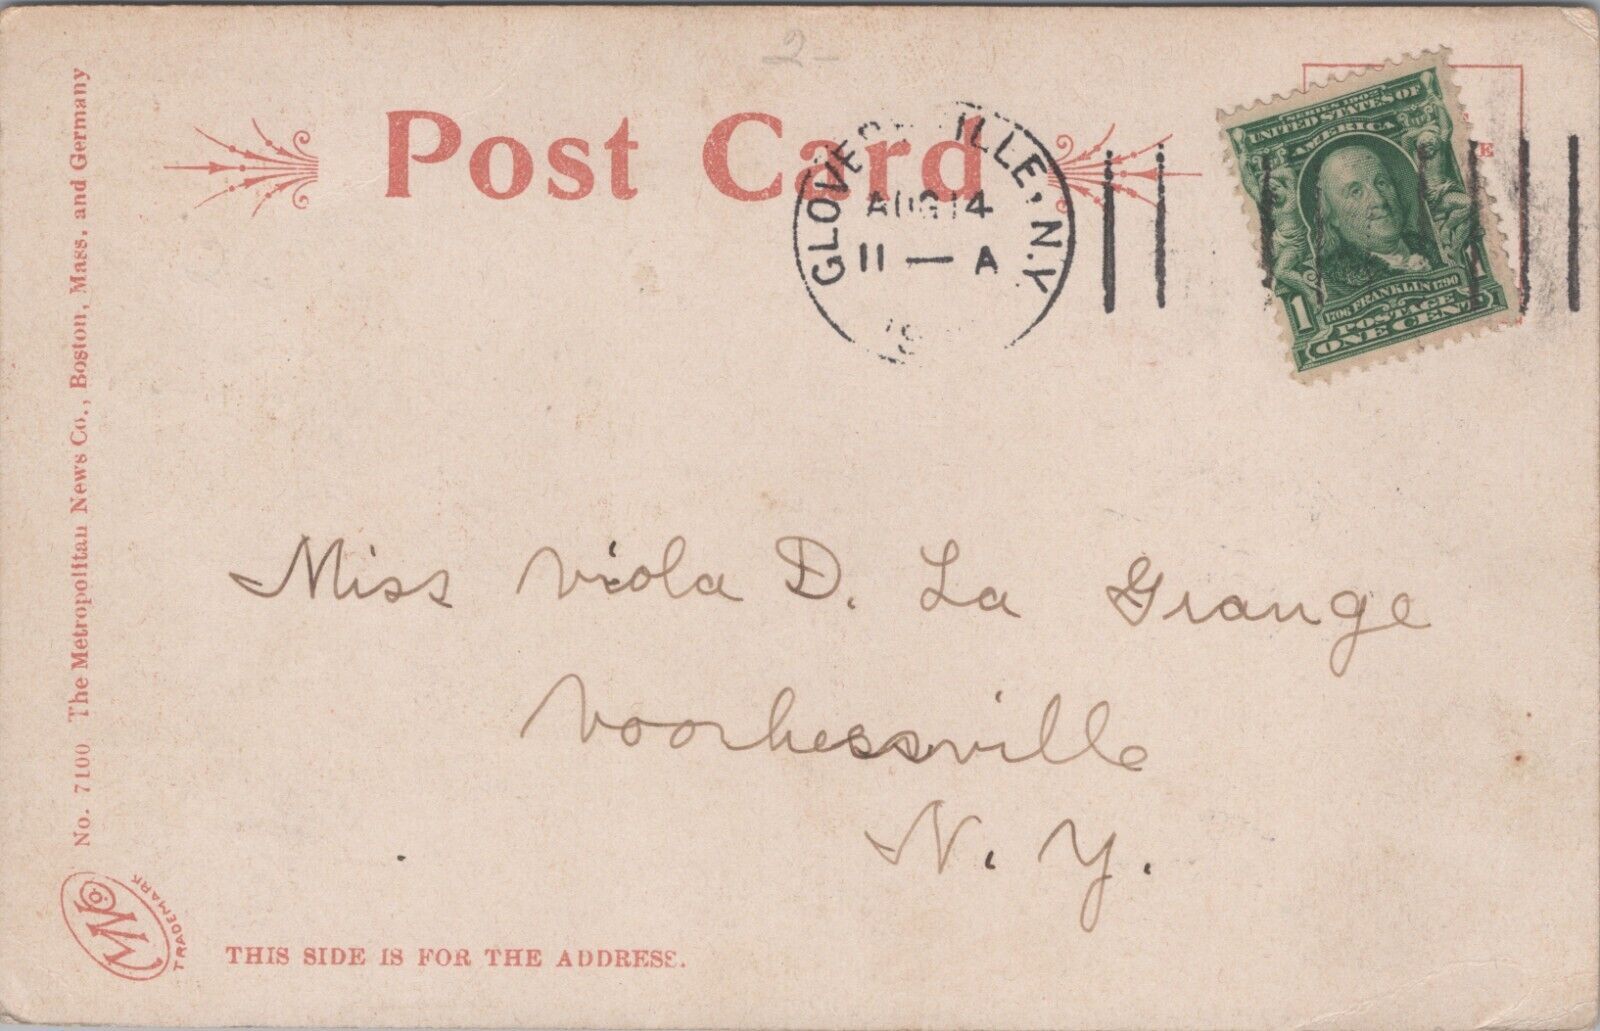 2-
Post Card
GLOVERSVILLE, N.Y.
AUG 14
11 — A
SERIES 1902
UNITED STATES OF
AMERICA
1706 FRANKLIN 1790
POSTAGE
1 ONE CENT 1
Miss Viola D. La Grange
Voorheesville
N. Y.
No. 7100 The Metropolitan News Co., Boston, Mass. and Germany
TRADEMARK
THIS SIDE IS FOR THE ADDRESS.